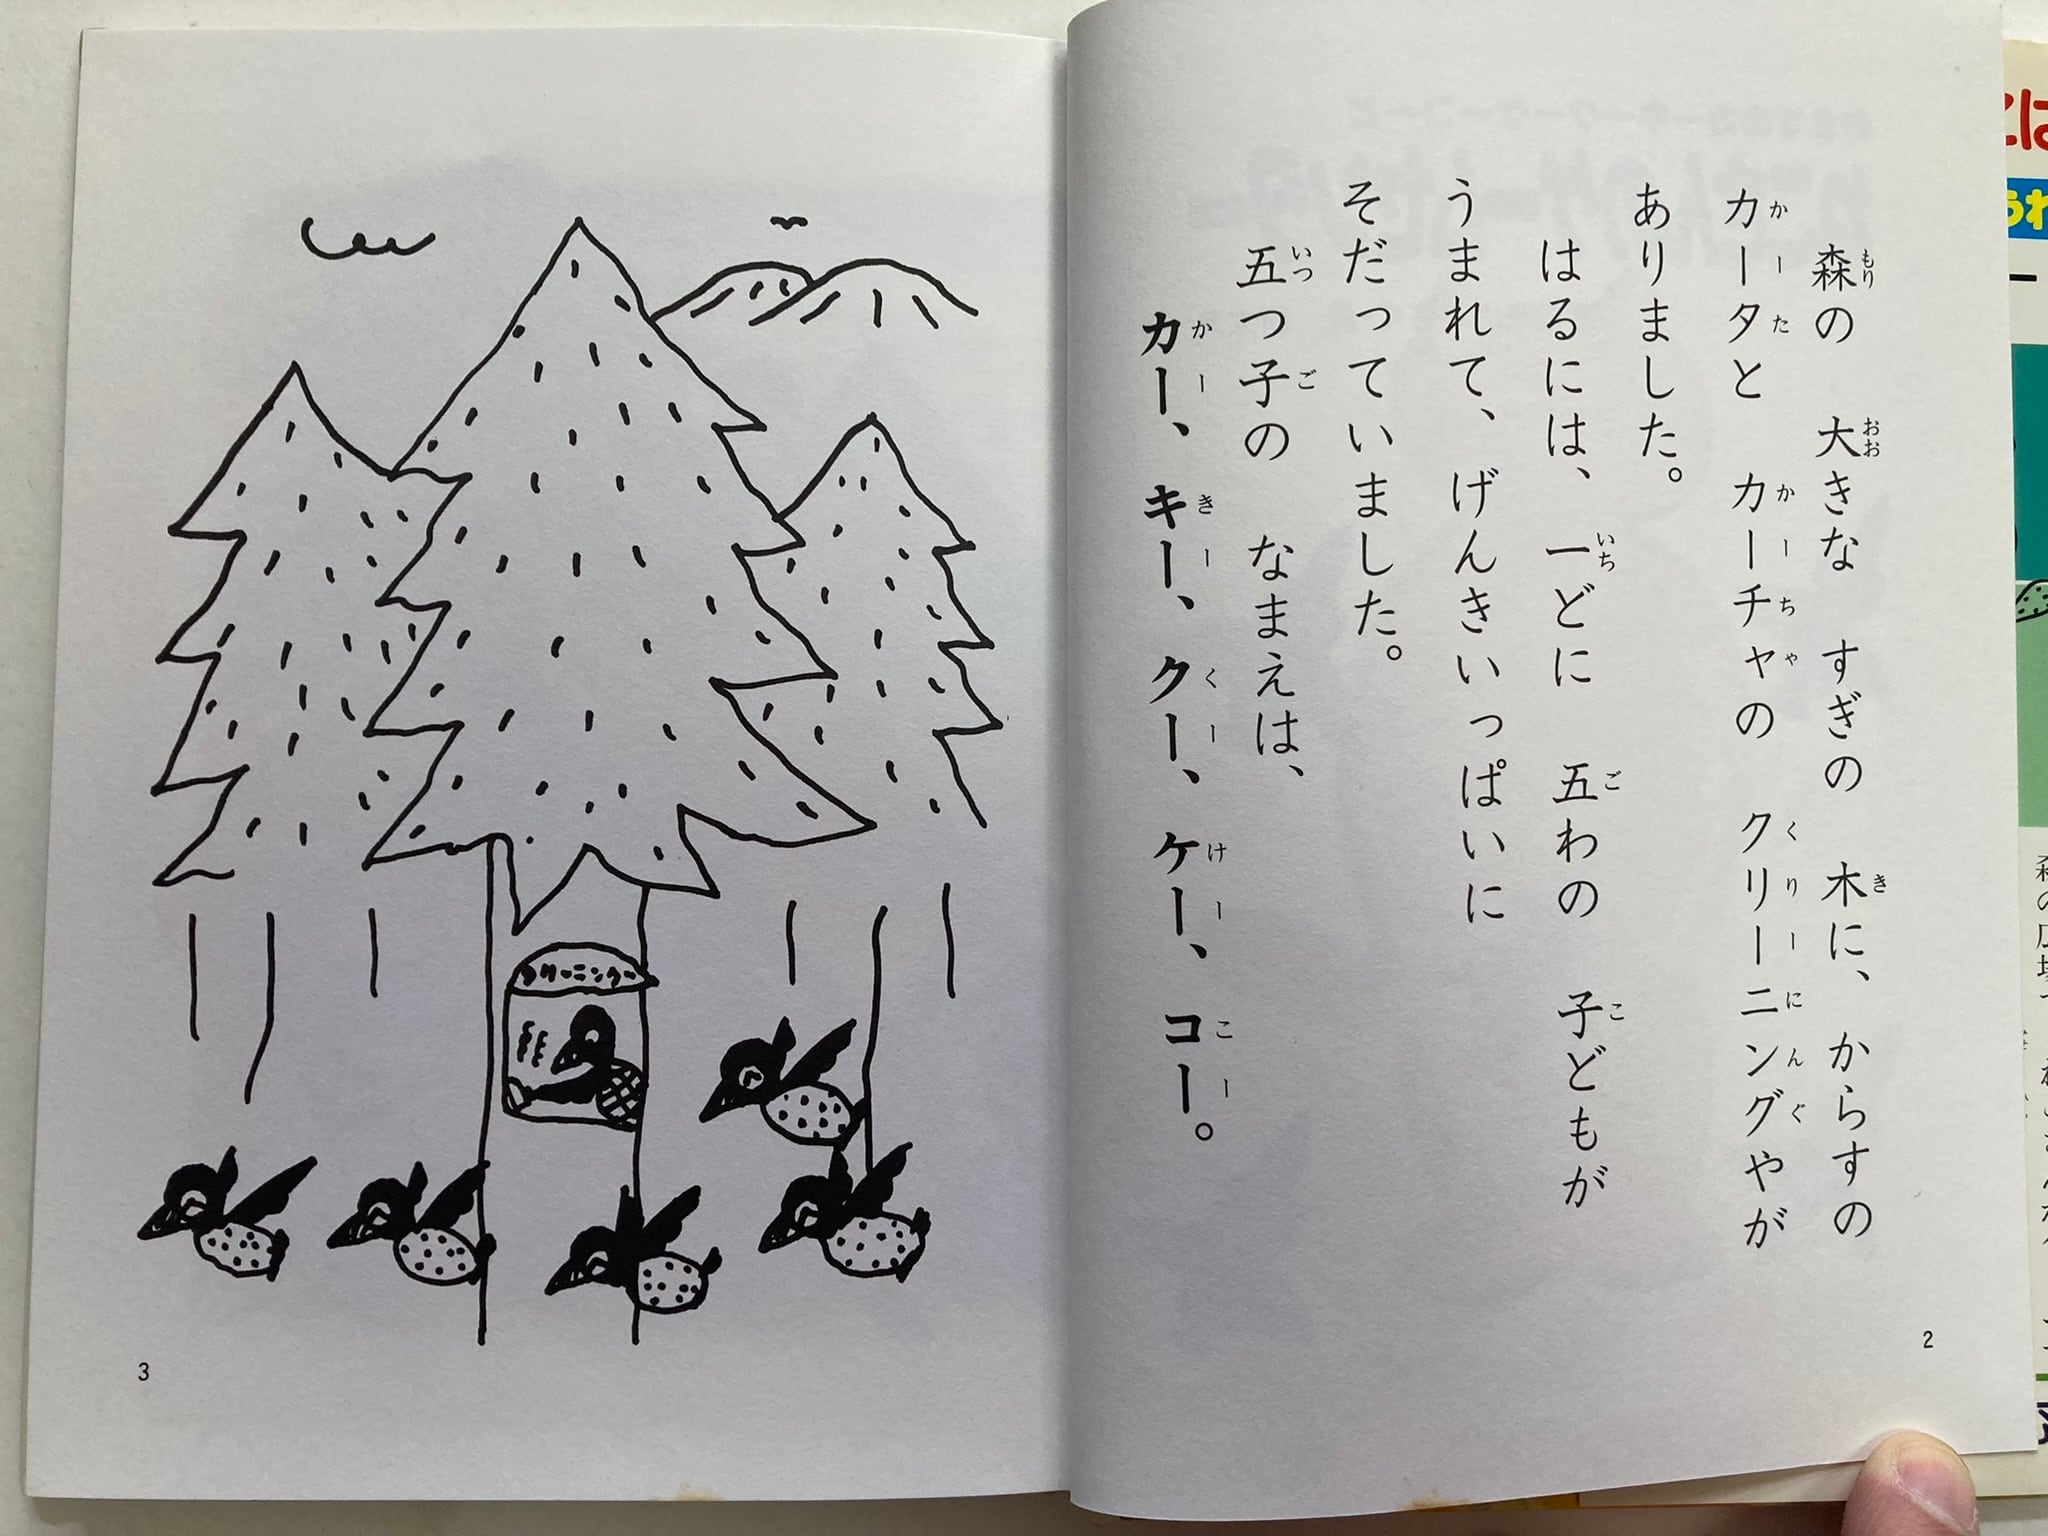 森の　大きな　すぎの　木に、からすの
カータと　カーチャの　クリーニングやが
ありました。
はるには、一どに　五わの　子どもが
うまれて、げんきいっぱいに
そだっていました。
五つ子の　なまえは、
カー、キー、クー、ケー、コー。
2
クリーニング
3